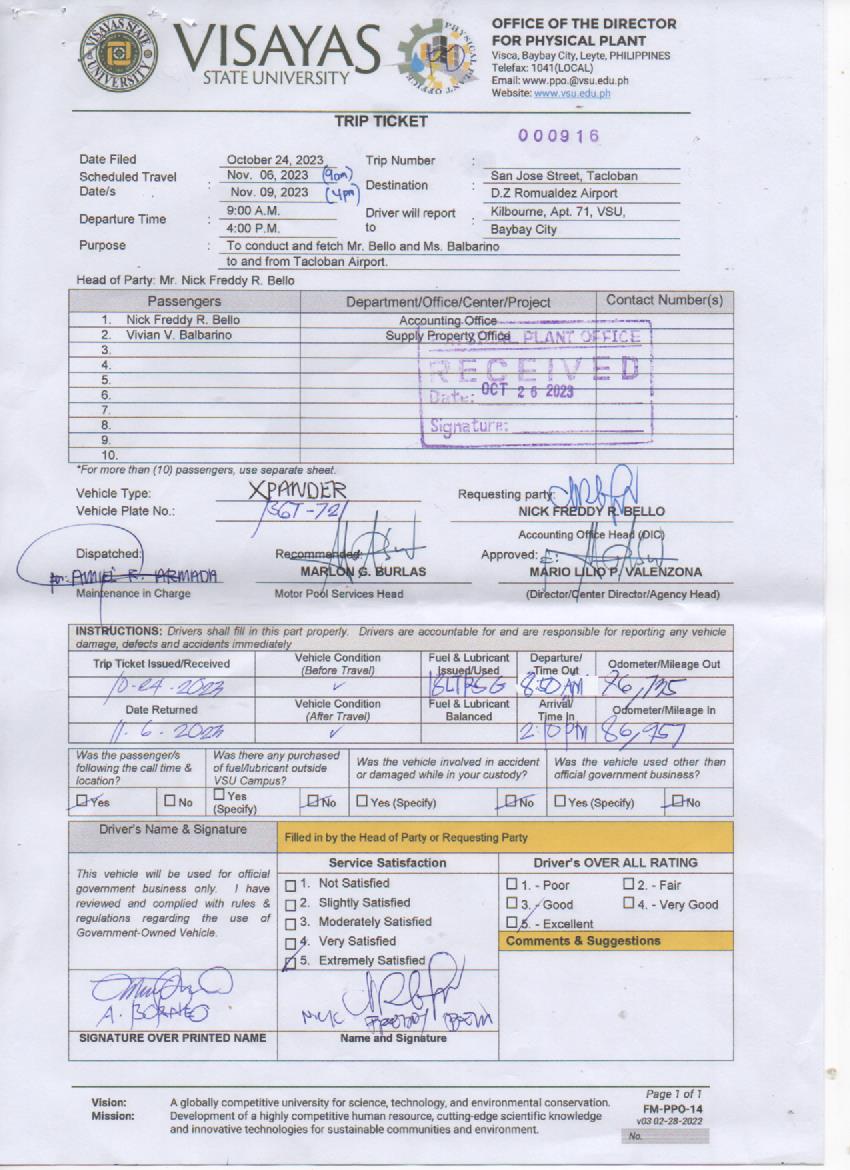 VISAYAS STATE UNIVERSITY
VISAYAS
STATE UNIVERSITY
PHYSICAL PLANT OFFICE
OFFICE OF THE DIRECTOR
FOR PHYSICAL PLANT
Visca, Baybay City, Leyte, PHILIPPINES
Telefax: 1041(LOCAL)
Email: www.ppo.@vsu.edu.ph
Website: www.vsu.edu.ph
TRIP TICKET
000916
Date Filed October 24, 2023 Trip Number :
Scheduled Travel Date/s : Nov. 06, 2023 (9am) Nov. 09, 2023 (4pm)
Destination : San Jose Street, Tacloban D.Z Romualdez Airport
Departure Time : 9:00 A.M. 4:00 P.M.
Driver will report to : Kilbourne, Apt. 71, VSU, Baybay City
Purpose : To conduct and fetch Mr. Bello and Ms. Balbarino
to and from Tacloban Airport.
Head of Party: Mr. Nick Freddy R. Bello
Passengers Department/Office/Center/Project Contact Number(s)
1. Nick Freddy R. Bello Accounting Office
2. Vivian V. Balbarino Supply Property Office
3.
4.
5.
6.
7.
8.
9.
10.
PLANT OFFICE
RECEIVED
Date: OCT 26 2023
Signature:
*For more than (10) passengers, use separate sheet.
Vehicle Type: XPANDER Requesting party:
Vehicle Plate No.: NICK FREDDY R. BELLO
Accounting Office Head (OIC)
Dispatched: Recommended: Approved:
ARMADA MARLON G. BURLAS MARIO LILIO P. VALENZONA
Maintenance in Charge Motor Pool Services Head (Director/Center Director/Agency Head)
INSTRUCTIONS: Drivers shall fill in this part properly. Drivers are accountable for and are responsible for reporting any vehicle
damage, defects and accidents immediately
Trip Ticket Issued/Received Vehicle Condition (Before Travel) Fuel & Lubricant Issued/Used Departure/ Time Out Odometer/Mileage Out
10-24-2023 ✓ 8:50 AM
Date Returned Vehicle Condition (After Travel) Fuel & Lubricant Balanced Arrival/ Time In Odometer/Mileage In
11-6-2023 ✓ 2:10 PM 86,957
Was the passenger/s following the call time & location?
Was there any purchased of fuel/lubricant outside VSU Campus?
Was the vehicle involved in accident or damaged while in your custody?
Was the vehicle used other than official government business?
Yes No Yes (Specify) No Yes (Specify) No Yes (Specify) No
Driver's Name & Signature Filled in by the Head of Party or Requesting Party
This vehicle will be used for official
government business only. I have
reviewed and complied with rules &
regulations regarding the use of
Government-Owned Vehicle.
Service Satisfaction
1. Not Satisfied
2. Slightly Satisfied
3. Moderately Satisfied
4. Very Satisfied
5. Extremely Satisfied
Driver's OVER ALL RATING
1. - Poor 2. - Fair
3. - Good 4. - Very Good
5. - Excellent
Comments & Suggestions
A. BORNEO
NICK FREDDY
SIGNATURE OVER PRINTED NAME Name and Signature
Vision: A globally competitive university for science, technology, and environmental conservation.
Mission: Development of a highly competitive human resource, cutting-edge scientific knowledge
and innovative technologies for sustainable communities and environment.
Page 1 of 1
FM-PPO-14
v03 02-28-2022
No.